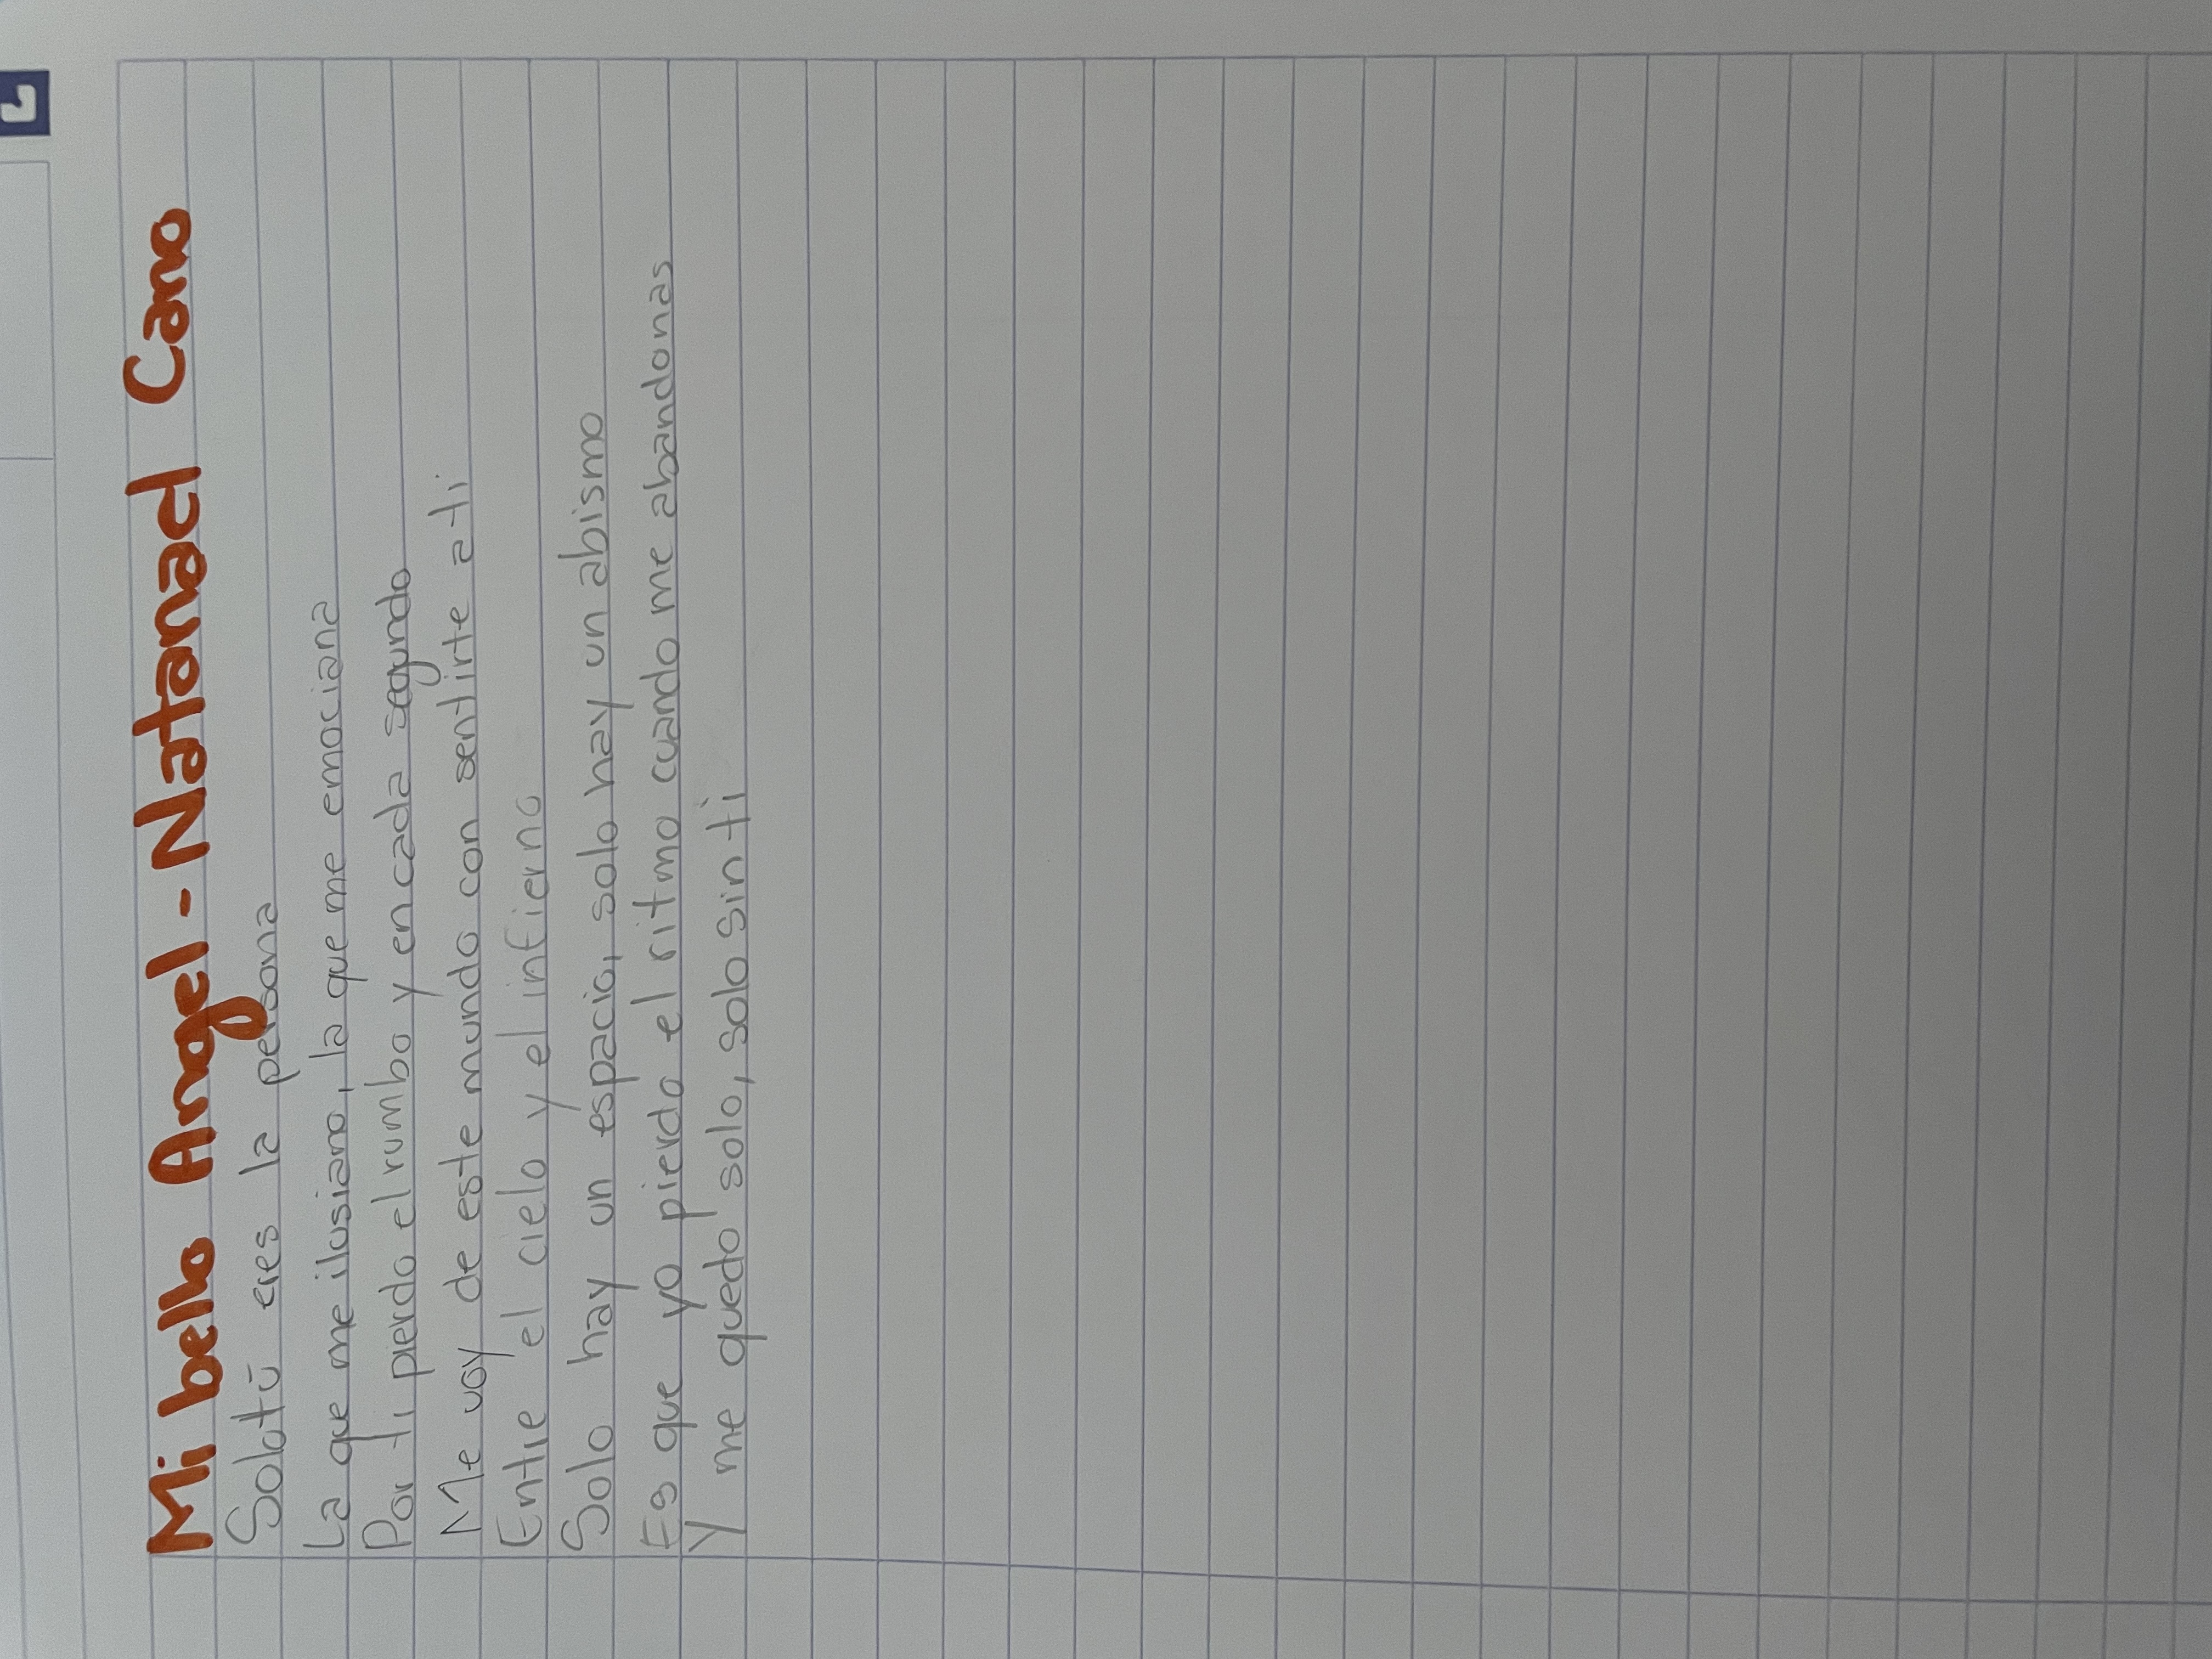 Mi bello Angel - Natanael Cano
Solo tú eres la persona
La que me ilusiono, la que me emociana
Por ti pierdo el rumbo y en cada segundo
Me voy de este mundo con sentirte a ti
Entre el cielo y el infierno
Solo hay un espacio, solo hay un abismo
Es que yo pierdo el ritmo cuando me abandonas
Y me quedo solo, solo sin ti